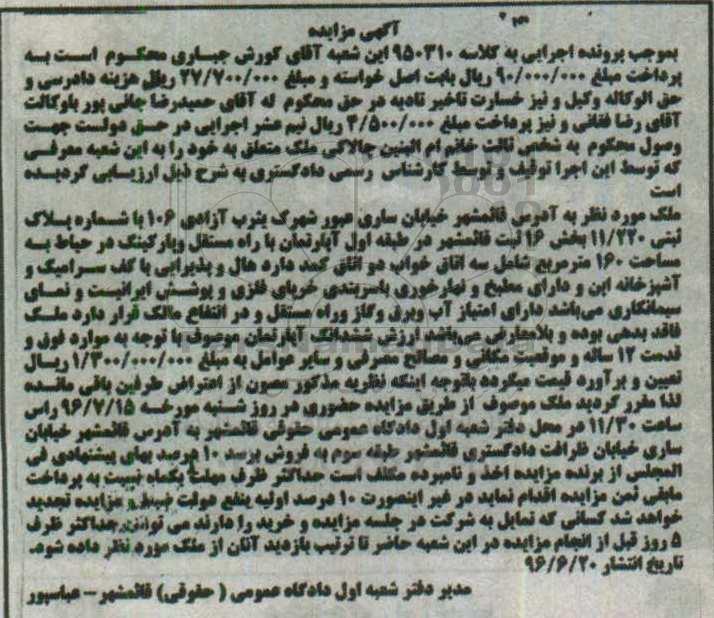 آگهی مزایده
بموجب پرونده اجرایی به کلاسه ۹۵۰۳۱۰ این شعبه آقای کورش جباری محکوم است به
پرداخت مبلغ ۹۰/۰۰۰/۰۰۰ ریال بابت اصل خواسته و مبلغ ۲۷/۷۰۰/۰۰۰ ریال هزینه دادرسی و
حق الوکاله وکیل و نیز خسارت تاخیر تادیه در حق محکوم له آقای حمیدرضا جانی پور باوکالت
آقای رضا فغانی و نیز پرداخت مبلغ ۴/۵۰۰/۰۰۰ ریال نیم عشر اجرایی در حق دولت جهت
وصول محکوم به شخص ثالث خانم ام البنین چالاکی ملک متعلق به خود را به این شعبه معرفی
که توسط این اجرا توقیف و توسط کارشناس رسمی دادگستری به شرح ذیل ارزیابی گردیده
است
ملک مورد نظر به آدرس قائمشهر خیابان ساری عبور شهرک یثرب آزادی ۱۰۶ با شماره پلاک
ثبتی ۱۱/۲۲۰ بخش ۱۶ ثبت قائمشهر در طبقه اول آپارتمان با راه مستقل وپارکینگ در حیاط به
مساحت ۱۶۰ مترمربع شامل سه اتاق خواب دو اتاق کمد دارد هال و پذیرایی با کف سرامیک و
آشپزخانه اپن و دارای مطبخ و نهارخوری باسربندی خرپای فلزی و پوشش ایرانیت و نمای
سیمانکاری می‌باشد دارای امتیاز آب وبرق وگاز وراه مستقل و در انتفاع مالک قرار دارد ملک
فاقد بدهی بوده و بلامعارض می‌باشد ارزش ششدانگ آپارتمان موصوف با توجه به موارد فوق و
قدمت ۱۲ ساله و موقعیت مکانی و مصالح مصرفی و سایر عوامل به مبلغ ۱/۳۰۰/۰۰۰/۰۰۰ ریال
تعیین و برآورد قیمت میگردد باتوجه اینکه نظریه مذکور مصون از اعتراض طرفین باقی مانده
لذا مقرر گردید ملک موصوف از طریق مزایده حضوری در روز شنبه مورخه ۹۶/۷/۱۵ راس
ساعت ۱۱/۳۰ در محل دفتر شعبه اول دادگاه عمومی حقوقی قائمشهر به آدرس قائمشهر خیابان
ساری خیابان ظرافت دادگستری قائمشهر طبقه سوم به فروش برسد ۱۰ درصد بهای پیشنهادی فی
المجلس از برنده مزایده اخذ و نامبرده مکلف است حداکثر ظرف مهلت یکماه نسبت به پرداخت
مابقی ثمن مزایده اقدام نماید در غیر اینصورت ۱۰ درصد اولیه بنفع دولت ضبط و مزایده تجدید
خواهد شد کسانی که تمایل به شرکت در جلسه مزایده و خرید را دارند می توانند حداکثر ظرف
۵ روز قبل از انجام مزایده در این شعبه حاضر تا ترتیب بازدید آنان از ملک مورد نظر داده شود.
تاریخ انتشار ۹۶/۶/۲۰
مدیر دفتر شعبه اول دادگاه عمومی ( حقوقی) قائمشهر – عباسپور